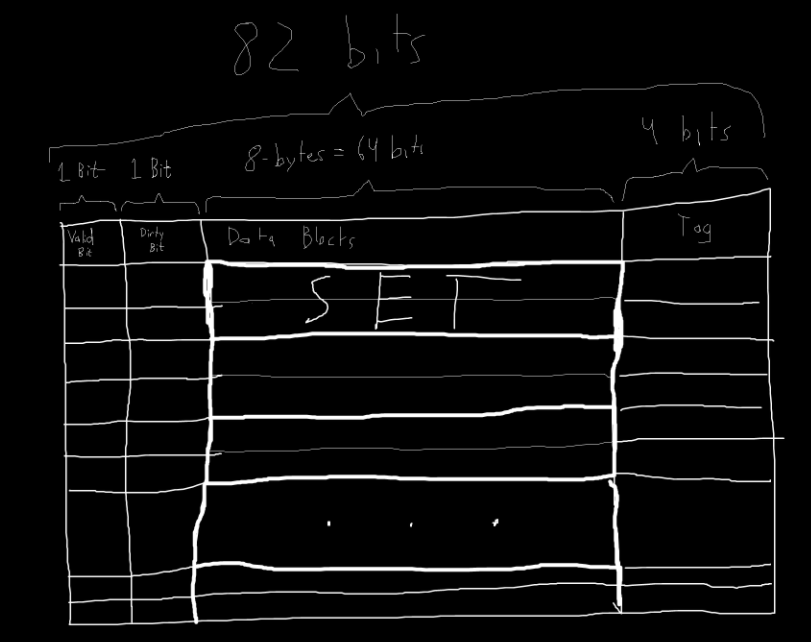 82 bits
4 bits
8-bytes = 64 bits
1 Bit 1 Bit
Valid Bit
Dirty Bit
Data Blocks
Tag
SET
. . .